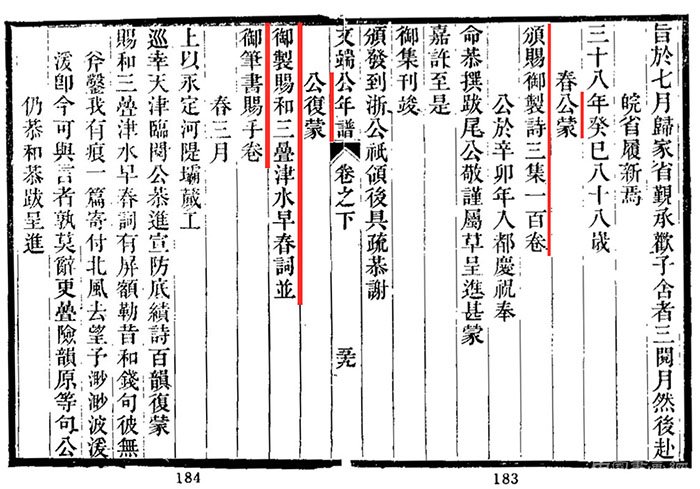 旨於七月歸家省覲承歡子舍者三閱月然後赴
皖省履新焉
三十八年癸巳八十八歲
春公蒙
頒賜御製詩三集一百卷
公於辛卯年入都慶祝奉
命恭撰跋尾公敬謹屬草呈進甚蒙
嘉許至是
御集刊竣
頒發到浙公祇領後具疏恭謝
文端公年譜 卷之下 五九
公復蒙
御製賜和三疊津水早春詞並
御筆書賜手卷
春三月
上以永定河隄壩蕆工
巡幸天津臨閱公恭進宣防底績詩百韻復蒙
賜和三疊津水早春詞有屏額勒昔和錢句彼無
斧鑿我有痕一篇寄付北風去望予渺渺波湲
湲卽今可與言者孰莫辭更疊險韻原等句公
仍恭和恭跋呈進
183
184